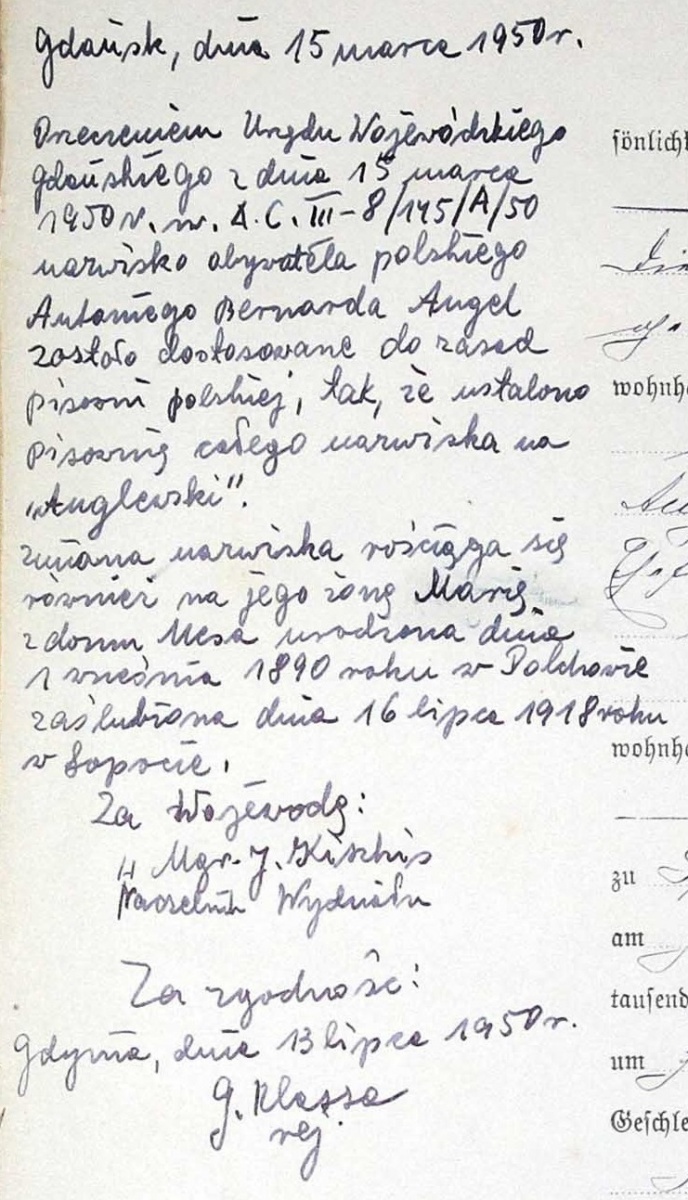 Gdańsk, dnia 15 marca 1950 r.
Orzeczeniem Urzędu Wojewódzkiego
Gdańskiego z dnia 15 marca
1950 r. nr. A.C. III-8/145/A/50
nazwisko obywatela polskiego
Antoniego Bernarda Angel
zostało dostosowane do zasad
pisowni polskiej, tak, że ustalono
pisownię całego nazwiska na
„Anglewski".
Zmiana nazwiska rościąga się
również na jego żonę Marię
z domu Mesa urodzona dnia
1 września 1890 roku w Połchowie
zaślubiona dnia 16 lipca 1918 roku
w Sopocie.
Za Wojewodę:
„ Mgr. J.
Naczelnik Wydziału
Za zgodność:
Gdynia, dnia 13 lipca 1950 r.
G. Klassa
rej.
sönlich
wohnha
wohnha
zu
am
tausend
um
Geschle